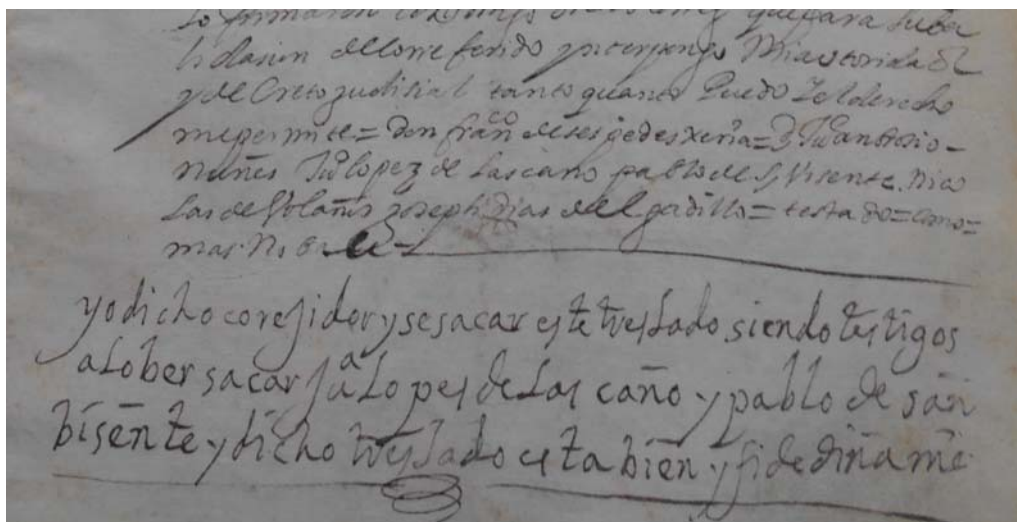 lo firmaron conmigo que para su ba
lidasion de lo rreferido ynterpongo mi autoridad
y de Creto judisial tanto quanto Puedo Y el derecho
me permite = Don franco de sespedes xeria = Ju antonio
Nuñes Ju lopez de Lascano pablo de S. Visente Nico
las de Volaños joseph dias del gadillo = testado = como =
mas. No bale
yo dicho corejidor yse sacar este treslado siendo testigos
a lo ber sacar jua Lopes de Las caño y pablo de sañ
bisente y dicho treslado esta bien y fidediñame